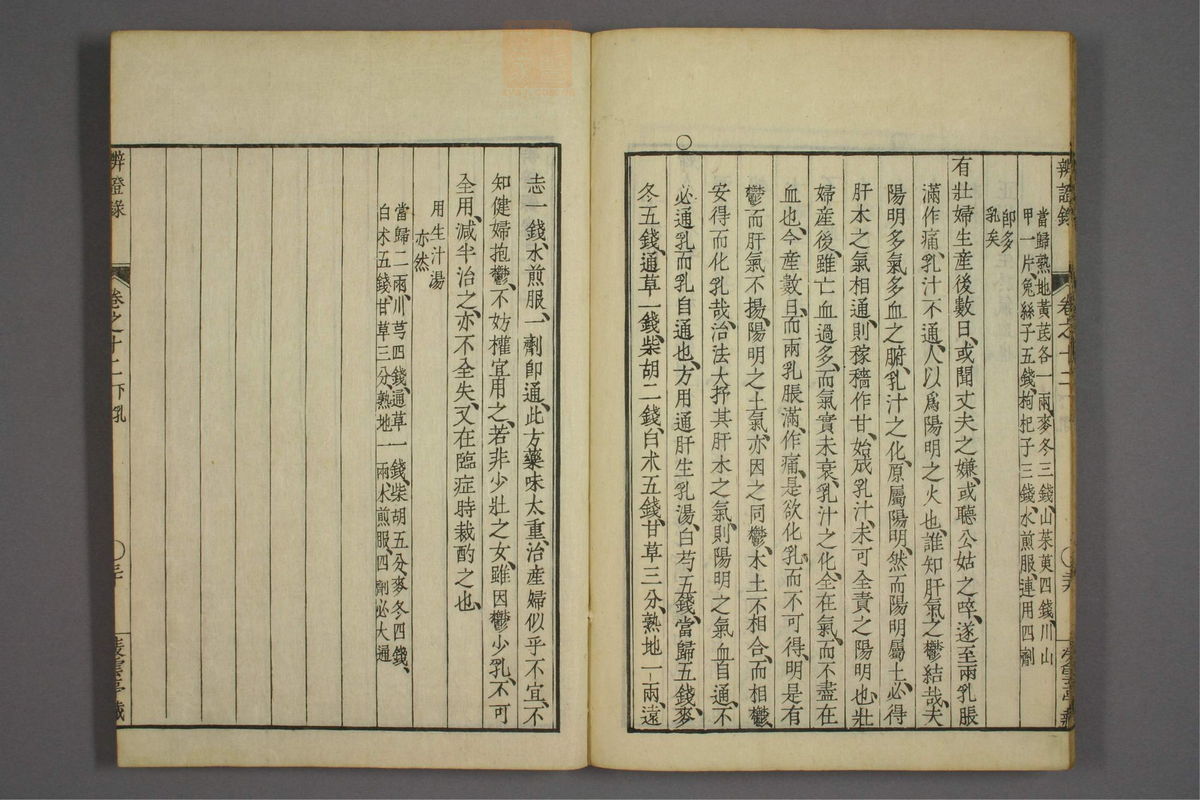 辨證錄 卷之十二
當歸熟地黃芪各一兩麥冬三錢山茱萸四錢川山
甲一片兔絲子五錢枸杞子三錢水煎服連用四劑
卽多
乳矣
有壯婦生産後數日或聞丈夫之嫌或聽公姑之啐遂至兩乳脹
滿作痛乳汁不通人以爲陽明之火也誰知肝氣之鬱結哉夫
陽明多氣多血之腑乳汁之化原屬陽明然而陽明屬土必得
肝木之氣相通則稼穡作甘始成乳汁未可全責之陽明也壯
婦産後雖亡血過多而氣實未衰乳汁之化全在氣而不盡在
血也今産數日而兩乳脹滿作痛是欲化乳而不可得明是有
鬱而肝氣不揚陽明之土氣亦因之同鬱木土不相合而相鬱
安得而化乳哉治法大抒其肝木之氣則陽明之氣血自通不
必通乳而乳自通也方用通肝生乳湯白芍五錢當歸五錢麥
冬五錢通草一錢柴胡二錢白术五錢甘草三分熟地一兩遠
志一錢水煎服一劑卽通此方藥味太重治産婦似乎不宜不
知健婦抱鬱不妨權宜用之若非少壯之女雖因鬱少乳不可
全用減半治之亦不全失又在臨症時裁酌之也
用生汁湯
亦然
當歸二兩川芎四錢通草一錢柴胡五分麥冬四錢
白术五錢甘草三分熟地一兩水煎服四劑必大通
辨證錄 卷之十二下乳